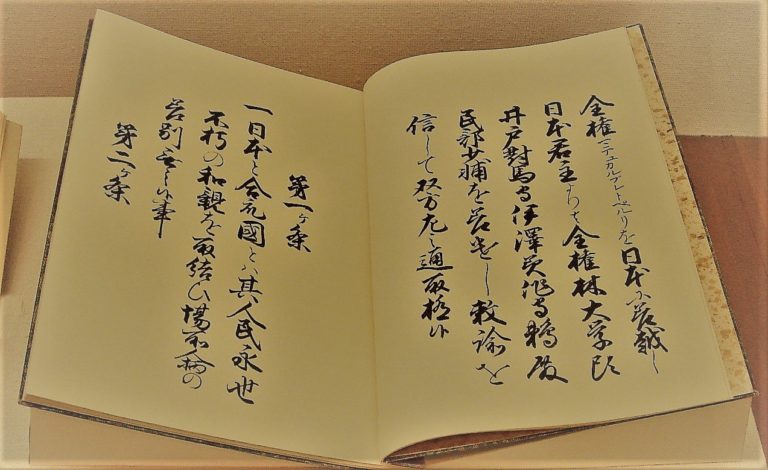 全権マテュカルブレトペルリを日本に差越し
日本君主よりは全権林大学頭
井戸對馬守伊澤美作守鵜殿
民部少輔を差遣し敕諭を
信して双方左之通取極候
第一ヶ条
一日本と合衆國とハ其人民永世
不朽の和親を取結ひ場所人柄の
差別無之候事
第二ヶ条